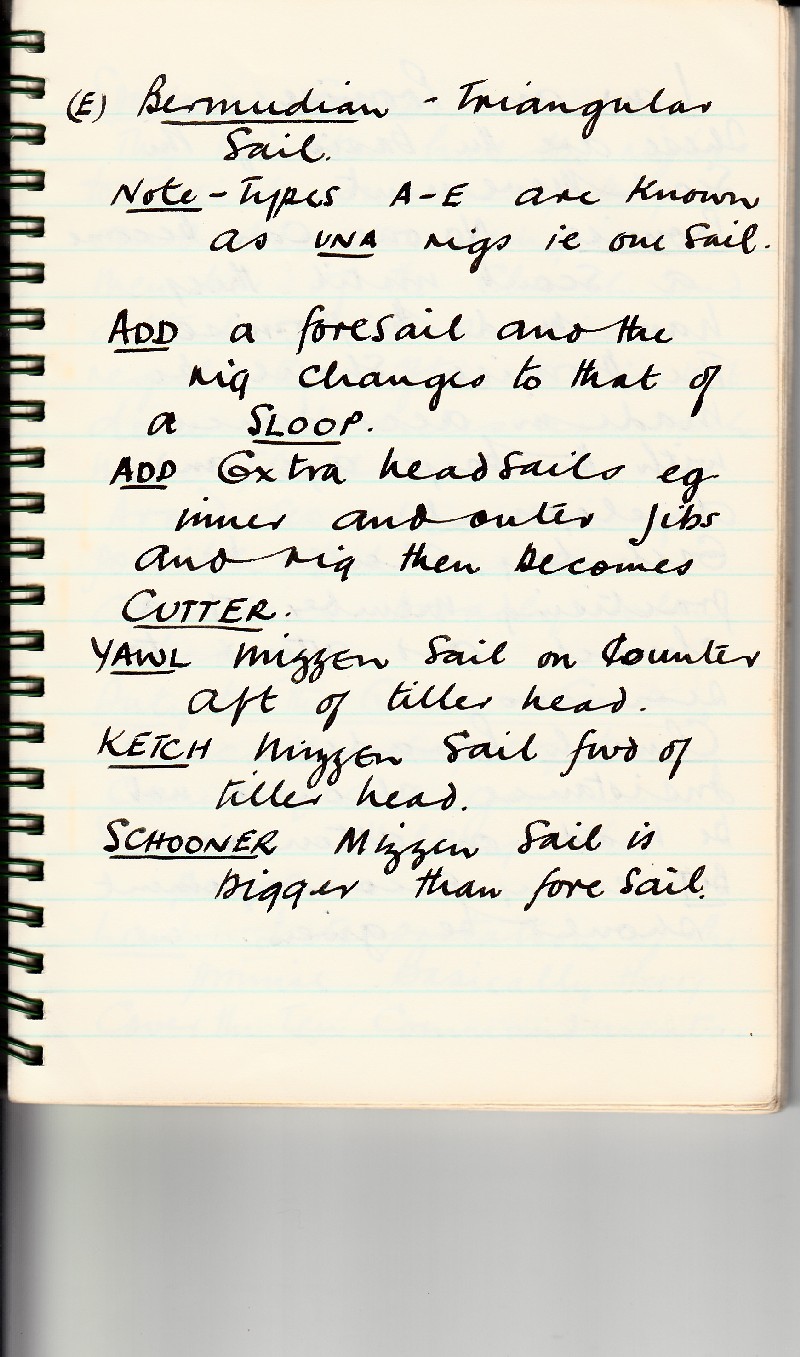 (E) Bermudian - Triangular
Sail.
Note - Types A-E are known
as UNA rigs ie one Sail.
ADD a foresail and the
rig changes to that of
a SLOOP.
ADD Extra headsails eg
inner and outer Jibs
and rig then becomes
CUTTER.
YAWL Mizzen Sail on Counter
aft of tiller head.
KETCH Mizzen Sail fwd of
tiller head.
SCHOONER Mizzen Sail is
bigger than fore Sail.